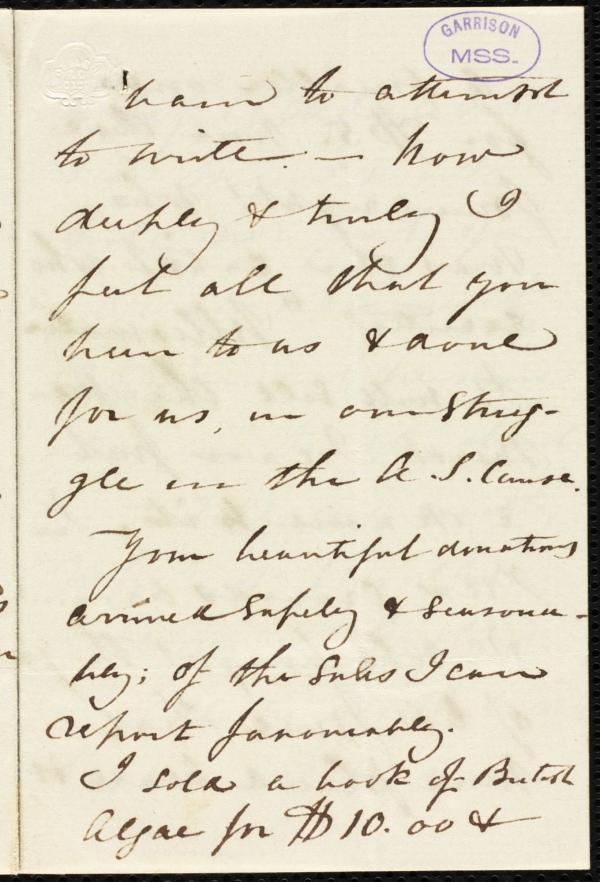 GARRISON
MSS.
to attempt
to write. — how
deeply & truly I
feel all that you
been to us & done
for us, in our strug-
gle in the A. S. Cause.
Your beautiful donations
arrived safely & seasona-
bly; of the sales I can
report favourably.
I sold a book of British
Algae for $10.00 &